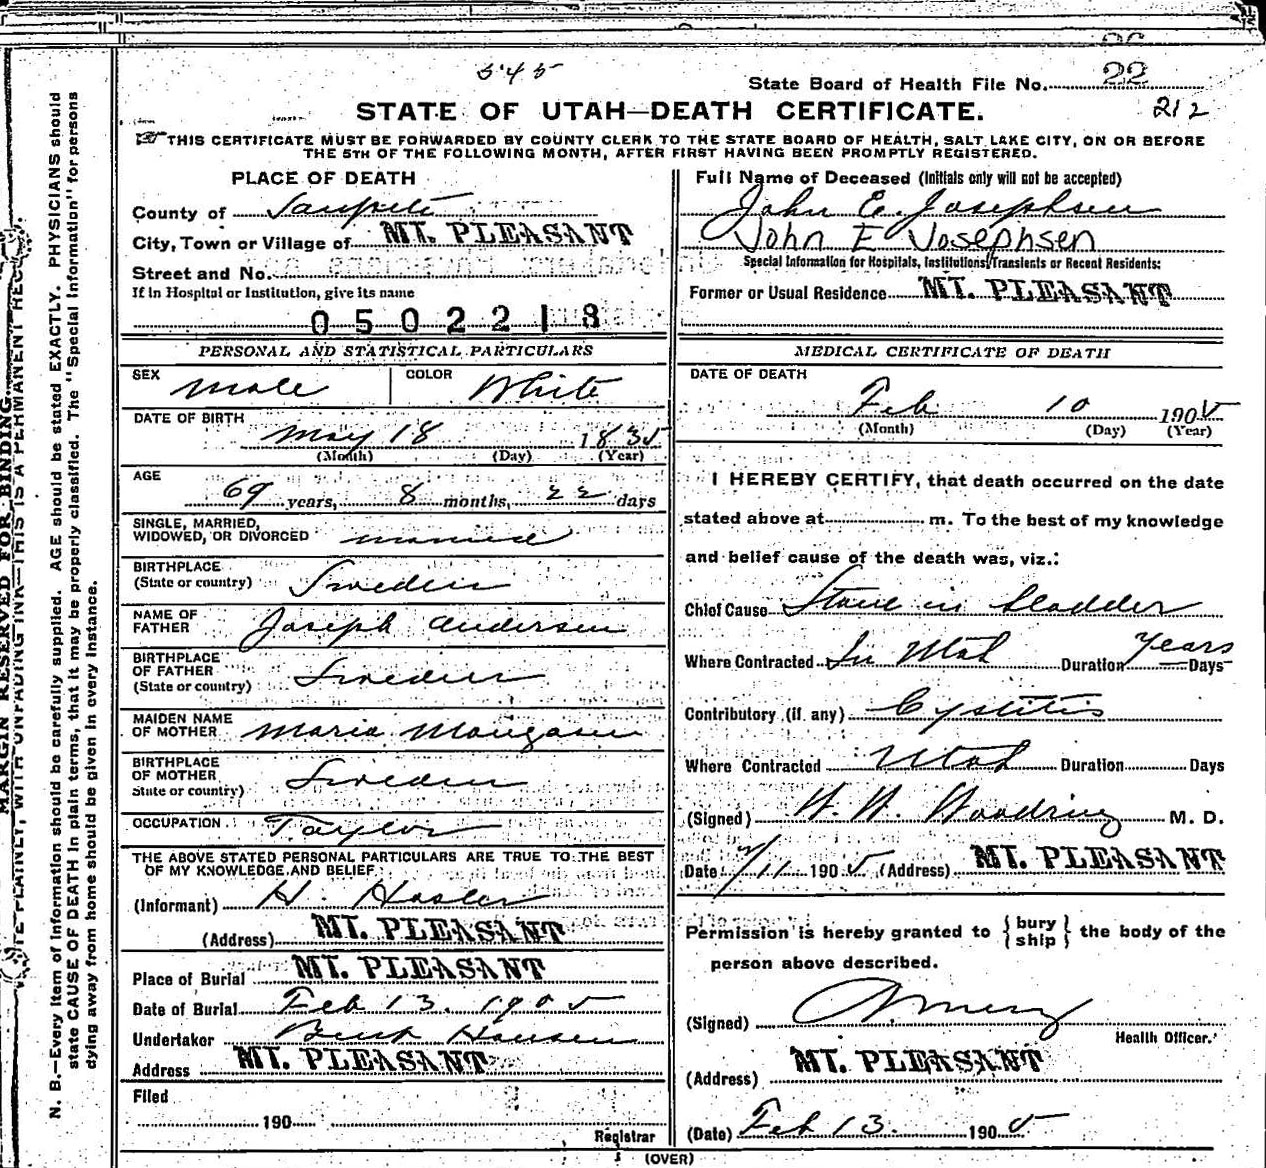 545
State Board of Health File No. 22
STATE OF UTAH—DEATH CERTIFICATE.
212
THIS CERTIFICATE MUST BE FORWARDED BY COUNTY CLERK TO THE STATE BOARD OF HEALTH, SALT LAKE CITY, ON OR BEFORE
THE 5TH OF THE FOLLOWING MONTH, AFTER FIRST HAVING BEEN PROMPTLY REGISTERED.
PLACE OF DEATH
County of Sanpete
City, Town or Village of MT. PLEASANT
Street and No.
If in Hospital or Institution, give its name
0502218
PERSONAL AND STATISTICAL PARTICULARS
SEX Male COLOR White
DATE OF BIRTH
May 18 1835
(Month) (Day) (Year)
AGE
69 years, 8 months, 22 days
SINGLE, MARRIED,
WIDOWED, OR DIVORCED married
BIRTHPLACE
(State or country) Sweden
NAME OF
FATHER Joseph Andersen
BIRTHPLACE
OF FATHER
(State or country) Sweden
MAIDEN NAME
OF MOTHER Maria
BIRTHPLACE
OF MOTHER
State or country) Sweden
OCCUPATION Taylor
THE ABOVE STATED PERSONAL PARTICULARS ARE TRUE TO THE BEST
OF MY KNOWLEDGE AND BELIEF
(Informant) H. Hasler
(Address) MT. PLEASANT
Place of Burial MT. PLEASANT
Date of Burial Feb 13. 1905
Undertaker Hansen
Address MT. PLEASANT
Filed
190
Registrar
Full Name of Deceased (Initials only will not be accepted)
John E. Josephsen
John E Josephsen
Special Information for Hospitals, Institutions, Transients or Recent Residents:
Former or Usual Residence MT. PLEASANT
MEDICAL CERTIFICATE OF DEATH
DATE OF DEATH
Feb 10 1905
(Month) (Day) (Year)
I HEREBY CERTIFY, that death occurred on the date
stated above at m. To the best of my knowledge
and belief cause of the death was, viz.:
Chief Cause Stone in bladder
Where Contracted In Utah Duration Years Days
Contributory (if any) Cystitis
Where Contracted Utah Duration Days
(Signed) Woodring M. D.
Date 2/11 1905 (Address) MT. PLEASANT
Permission is hereby granted to {bury
ship} the body of the
person above described.
(Signed)
Health Officer.
(Address) MT. PLEASANT
(Date) Feb 13. 1905
(OVER)
MARGIN RESERVED FOR BINDING.
WRITE PLAINLY, WITH UNFADING INK—THIS IS A PERMANENT RECORD.
N. B.—Every item of information should be carefully supplied. AGE should be stated EXACTLY. PHYSICIANS should
state CAUSE OF DEATH in plain terms, that it may be properly classified. The "Special Information" for persons
dying away from home should be given in every instance.